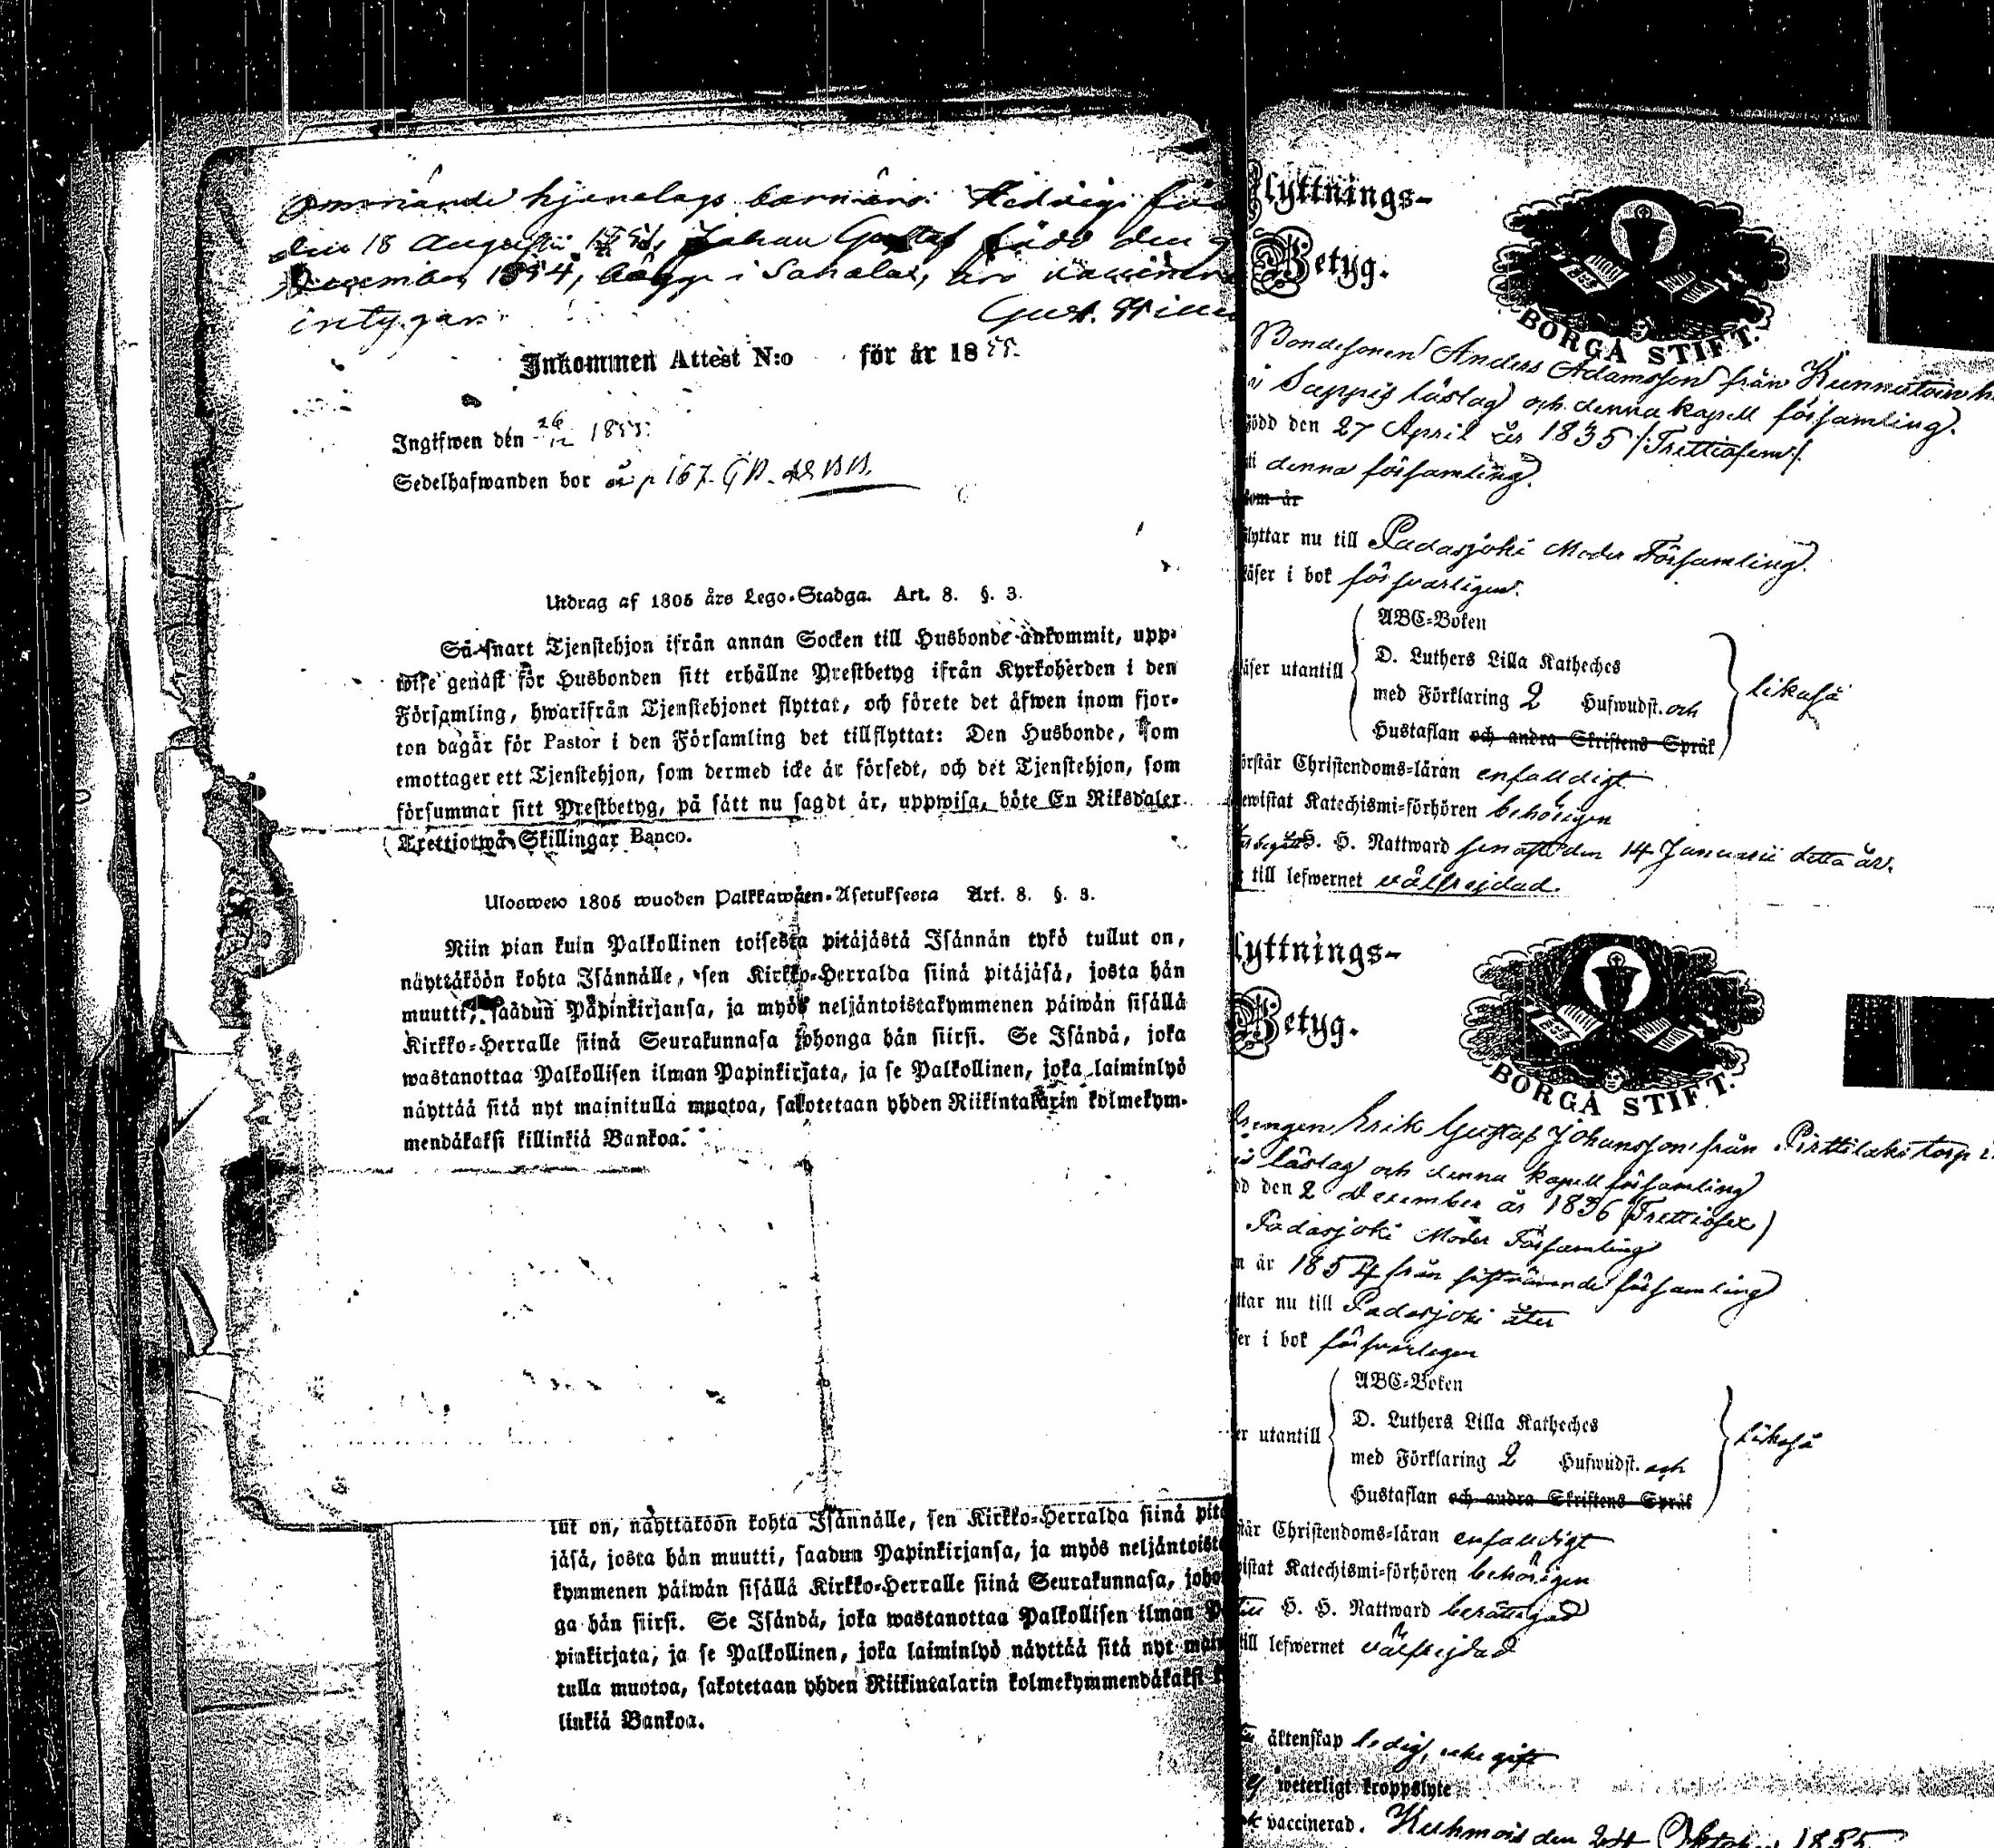 hjonelags barn äro: Hedvig
den 18 Augusti Johan Gustaf född den 9
December 1854, begge i Sahalax, äro
intygar.
Inkommen Attest N:o för år 1855.
Ingifwen den 26/12 1855.
Sedelhafwanden bor p 167.
Utdrag af 1805 års Lego-Stadga. Art. 8. §. 3.
Så snart Tjenstehjon ifrån annan Socken till Husbonde ankommit, upp-
wise genast för Husbonden sitt erhållne Prestbetyg ifrån Kyrkoherden i den
Församling, hwarifrån Tjenstehjonet flyttat, och förete det äfwen inom fjor-
ton dagar för Pastor i den Församling det tillflyttat: Den Husbonde, som
emottager ett Tjenstehjon, som dermed icke är försedt, och det Tjenstehjon, som
försummar sitt Prestbetyg, på sätt nu sagdt är, uppwisa, böte En Riksdaler
Trettiotwå Skillingar Banco.
Uloswето 1805 wuoden Palkkawäen-Asetuksesta Art. 8. §. 3.
Niin pian kuin Palkollinen toisesta pitäjästä Isännän tykö tullut on,
näyttäköön kohta Isännälle, sen Kirkko-Herralda siinä pitäjäsä, josta hän
muutti, saadun Papinkirjansa, ja myös neljäntoistakymmenen päiwän sisällä
Kirkko-Herralle siinä Seurakunnasa johonga hän siirsi. Se Isändä, joka
wastanottaa Palkollisen ilman Papinkirjata, ja se Palkollinen, joka laiminlyö
näyttää sitä nyt mainitulla muotoa, sakotetaan yhden Riikintalarin kolmekym-
mendäkaksi killinkiä Bankoa.
lut on, näyttäköön kohta Isännälle, sen Kirkko-Herralda siinä pitä
jäsä, josta hän muutti, saadun Papinkirjansa, ja myös neljäntoista
kymmenen päiwän sisällä Kirkko-Herralle siinä Seurakunnasa, johon
ga hän siirsi. Se Isändä, joka wastanottaa Palkollisen ilman Pa
pinkirjata, ja se Palkollinen, joka laiminlyö näyttää sitä nyt main
tulla muotoa, sakotetaan yhden Riikintalarin kolmekymmendäkaksi
linkiä Bankoa.
Flyttnings-
Betyg.
BORGÅ STIFT.
Bondesonen Anders Adamsson från
i Sappis läslag och denna kapell församling.
född den 27 April år 1835 /:Trettiofem:/
i denna församling.
som år
flyttar nu till Padasjoki Moder Församling.
läser i bok försvarligen.
ABC-Boken
D. Luthers Lilla Katheches
läser utantill med Förklaring 2 Hufwudst. och likaså
Hustaflan och andra Skriftens Språk
förstår Christendoms-läran enfaldigt
bewistat Katechismi-förhören behörigen
begått H. H. Nattward senast den 14 Januarii detta år.
till lefwernet välfrejdad.
Flyttnings-
Betyg.
BORGÅ STIFT.
Drengen Erik Gustaf Johansson från Pirttilaks torp i
läslag och denna kapell församling
född den 2 December år 1836 (Trettiosex)
Padasjoki Moder Församling
år 1854 från församling
flyttar nu till Padasjoki åter
läser i bok försvarligen
ABC-Boken
D. Luthers Lilla Katheches
utantill med Förklaring 2 Hufwudst. och likaså
Hustaflan och andra Skriftens Språk
förstår Christendoms-läran enfaldigt
bewistat Katechismi-förhören behörigen
till H. H. Nattward berättigad
till lefwernet välfrejdad
äktenskap ledig, icke gift
weterligt kroppslyte
vaccinerad. Kuhmois den 24 Oktober 1855